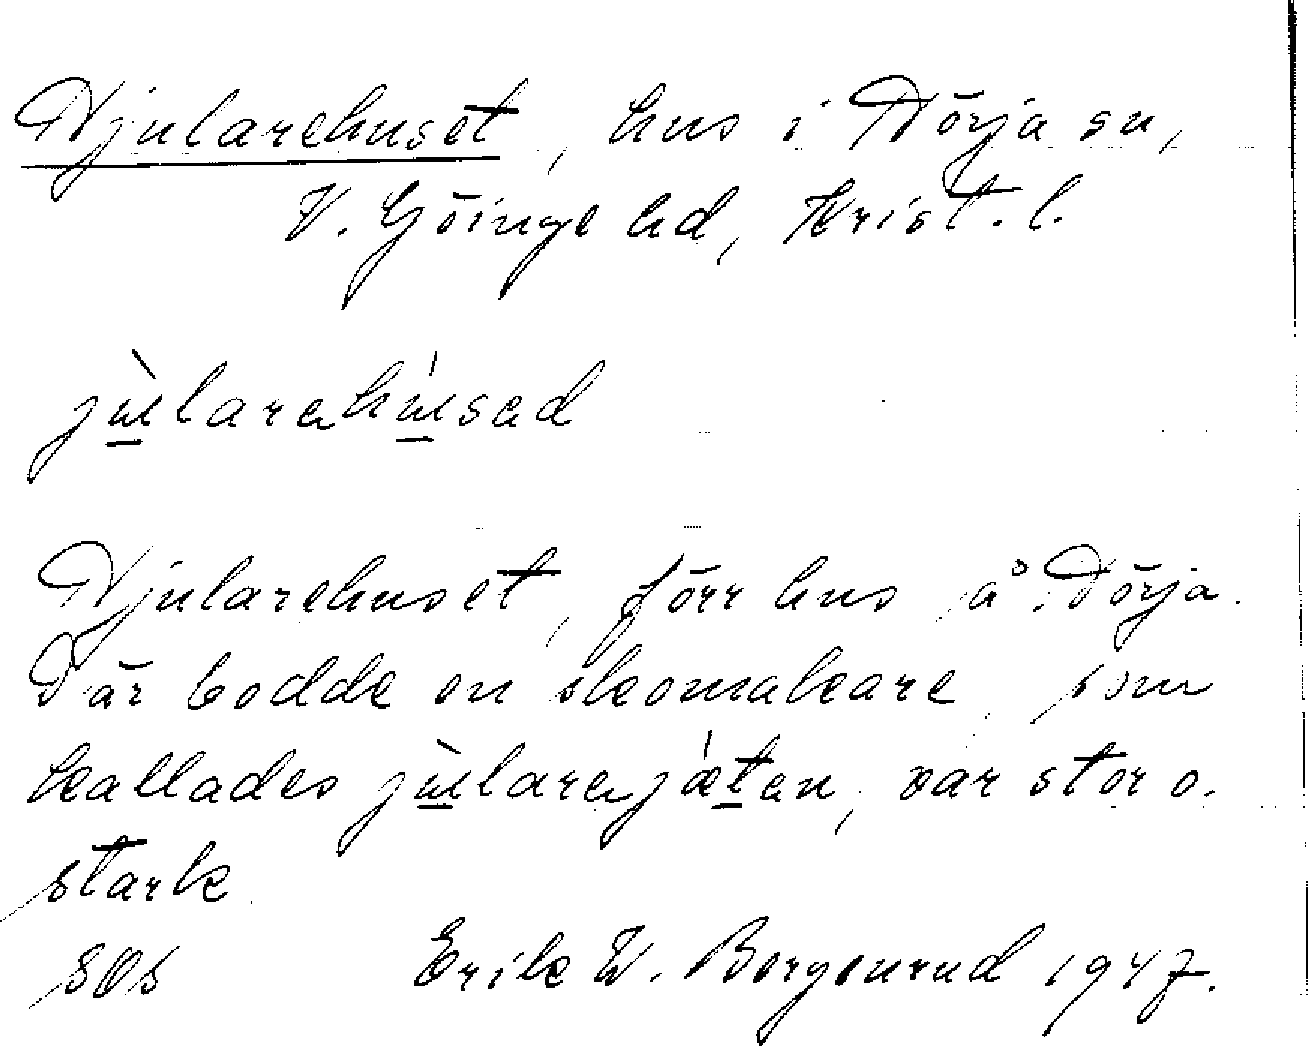 Hjularehuset, hus i Hörja sn,
V. Göinge hd, Krist. l.
jùlarəhúsəd
Hjularehuset, förr hus å Hörja.
Där bodde en skomakare som
kallades jùlarəjǽtən, var stor o.
stark
SOS Erik W. Borgenrud 1947.